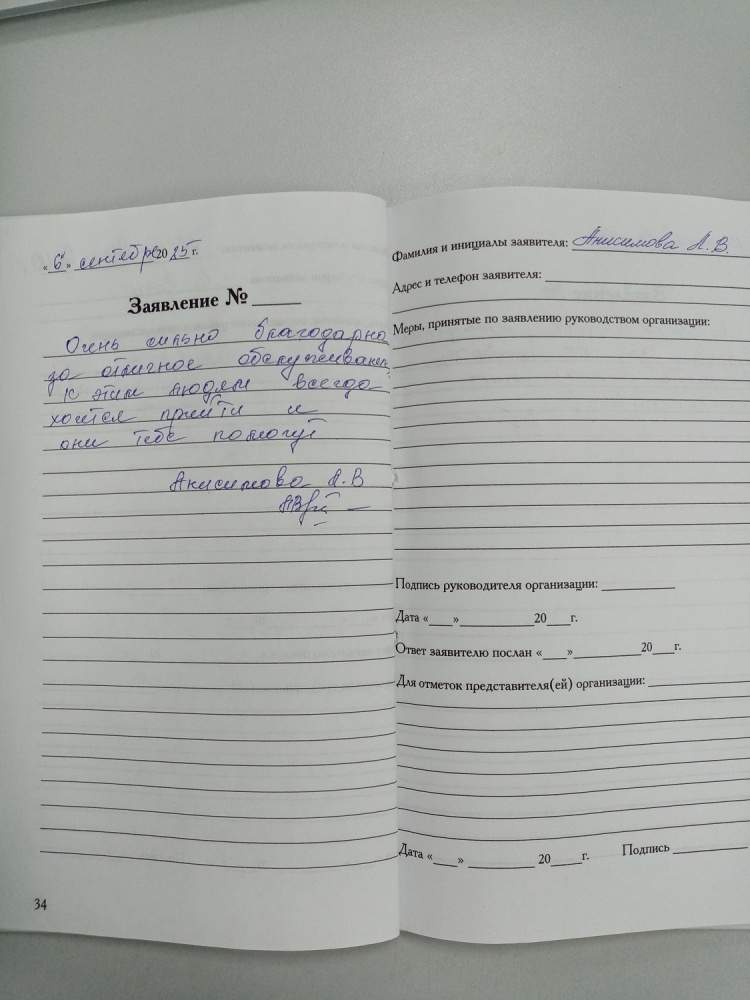 «6» сентября 2025 г.
Заявление № ____
Очень сильно благодарна
за отличное обслуживание
К этим людям всегда
хочется прийти и
они тебе помогут
Анисимова А.В
34
Фамилия и инициалы заявителя: Анисимова А.В.
Адрес и телефон заявителя:
Меры, принятые по заявлению руководством организации:
Подпись руководителя организации: ____
Дата «___»____20___г.
Ответ заявителю послан «___»____20___г.
Для отметок представителя(ей) организации: ____
Дата «___»____20___г. Подпись ____